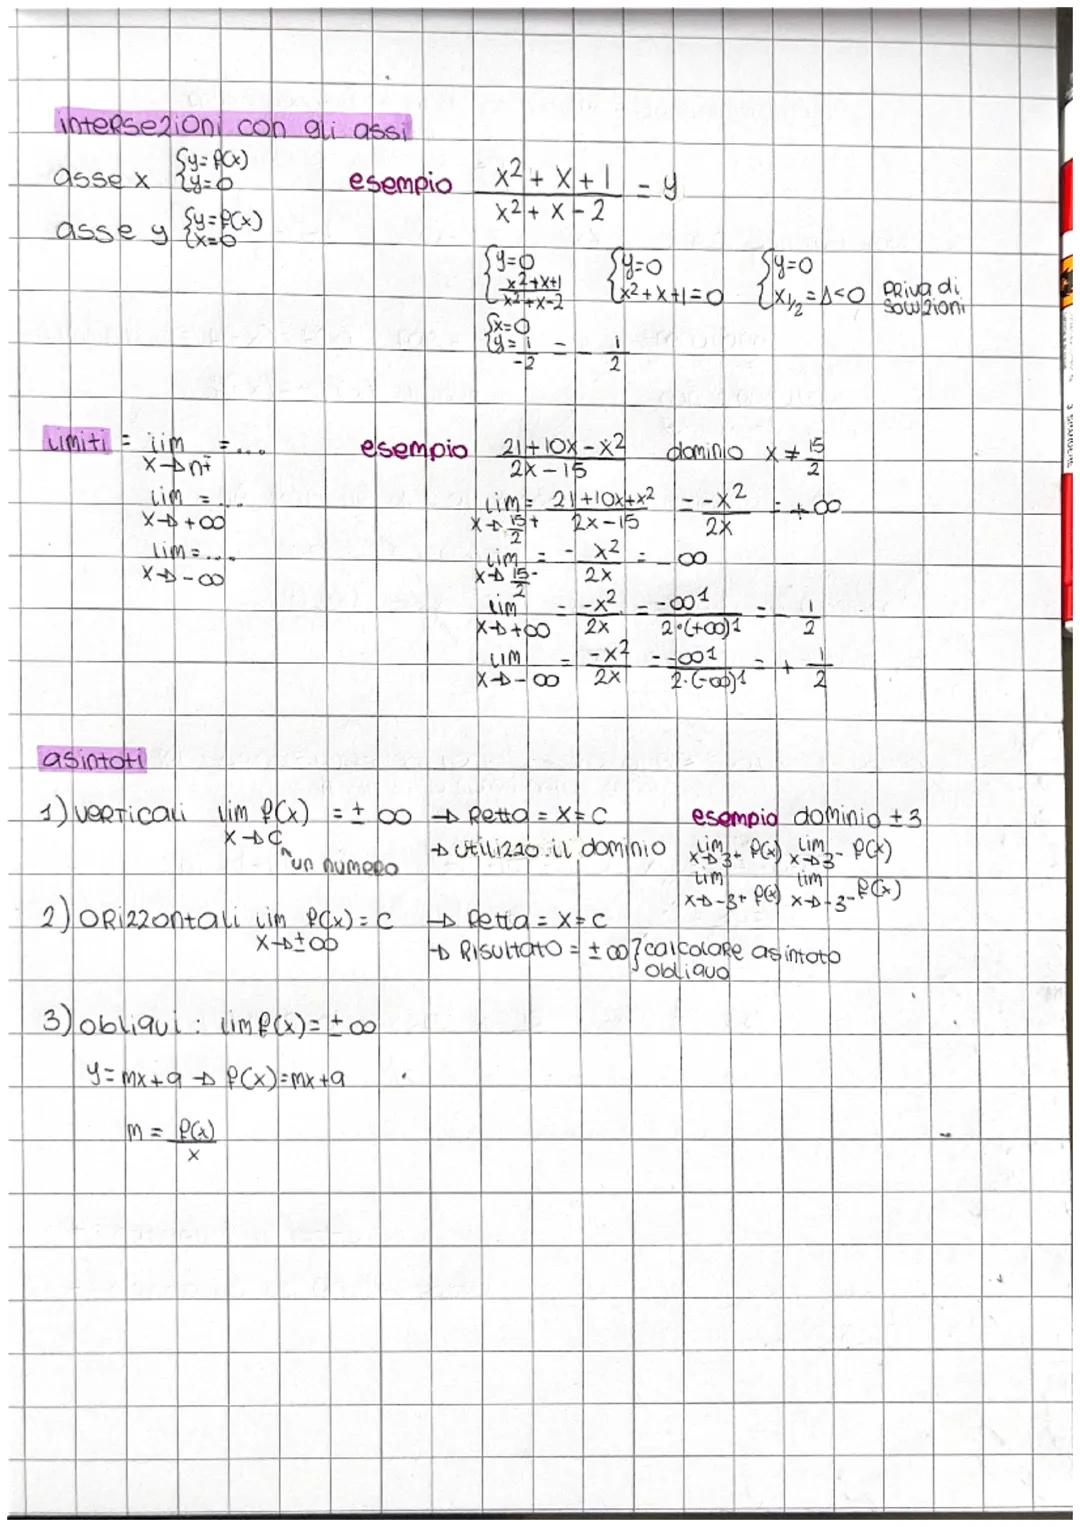 intersezioni con gli assi
asse x {y=f(x) {y=0
asse y {y=f(x) {x=0
esempio x²+x+1 / x²+x-2 = y
{y=0 {x²+x+1 / x²+x-2 {y=0 {x²+x+1=0 {y=0 {x1/2=Δ<0 priva di soluzioni
{x=0 {y=1/-2 = -1/2
limiti = lim x→n± =...
lim x→+∞ =...
lim x→-∞ =...
esempio 21+10x-x² / 2x-15 dominio x≠15/2
lim x→15/2+ = 21+10x+x² / 2x-15 = -x²/2x = +∞
lim x→15/2- = -x²/2x = -∞
lim x→+∞ = -x²/2x = -∞1 / 2·(+∞)1 = -1/2
lim x→-∞ = -x²/2x = -∞1 / 2·(-∞)1 = +1/2
asintoti
1) verticali lim x→c f(x) = ±∞ → Retta = x=c
un numero
→ utilizzo il dominio
esempio dominio ±3
lim x→3+ f(x) lim x→3- f(x)
lim x→-3+ f(x) lim x→-3- f(x)
2) orizzontali lim x→±∞ f(x) = c → Retta = x=c
→ Risultato = ±∞} calcolare asintoto obliquo
3) obliqui : lim f(x) = ±∞
y=mx+q → f(x)=mx+q
m = f(x)/x